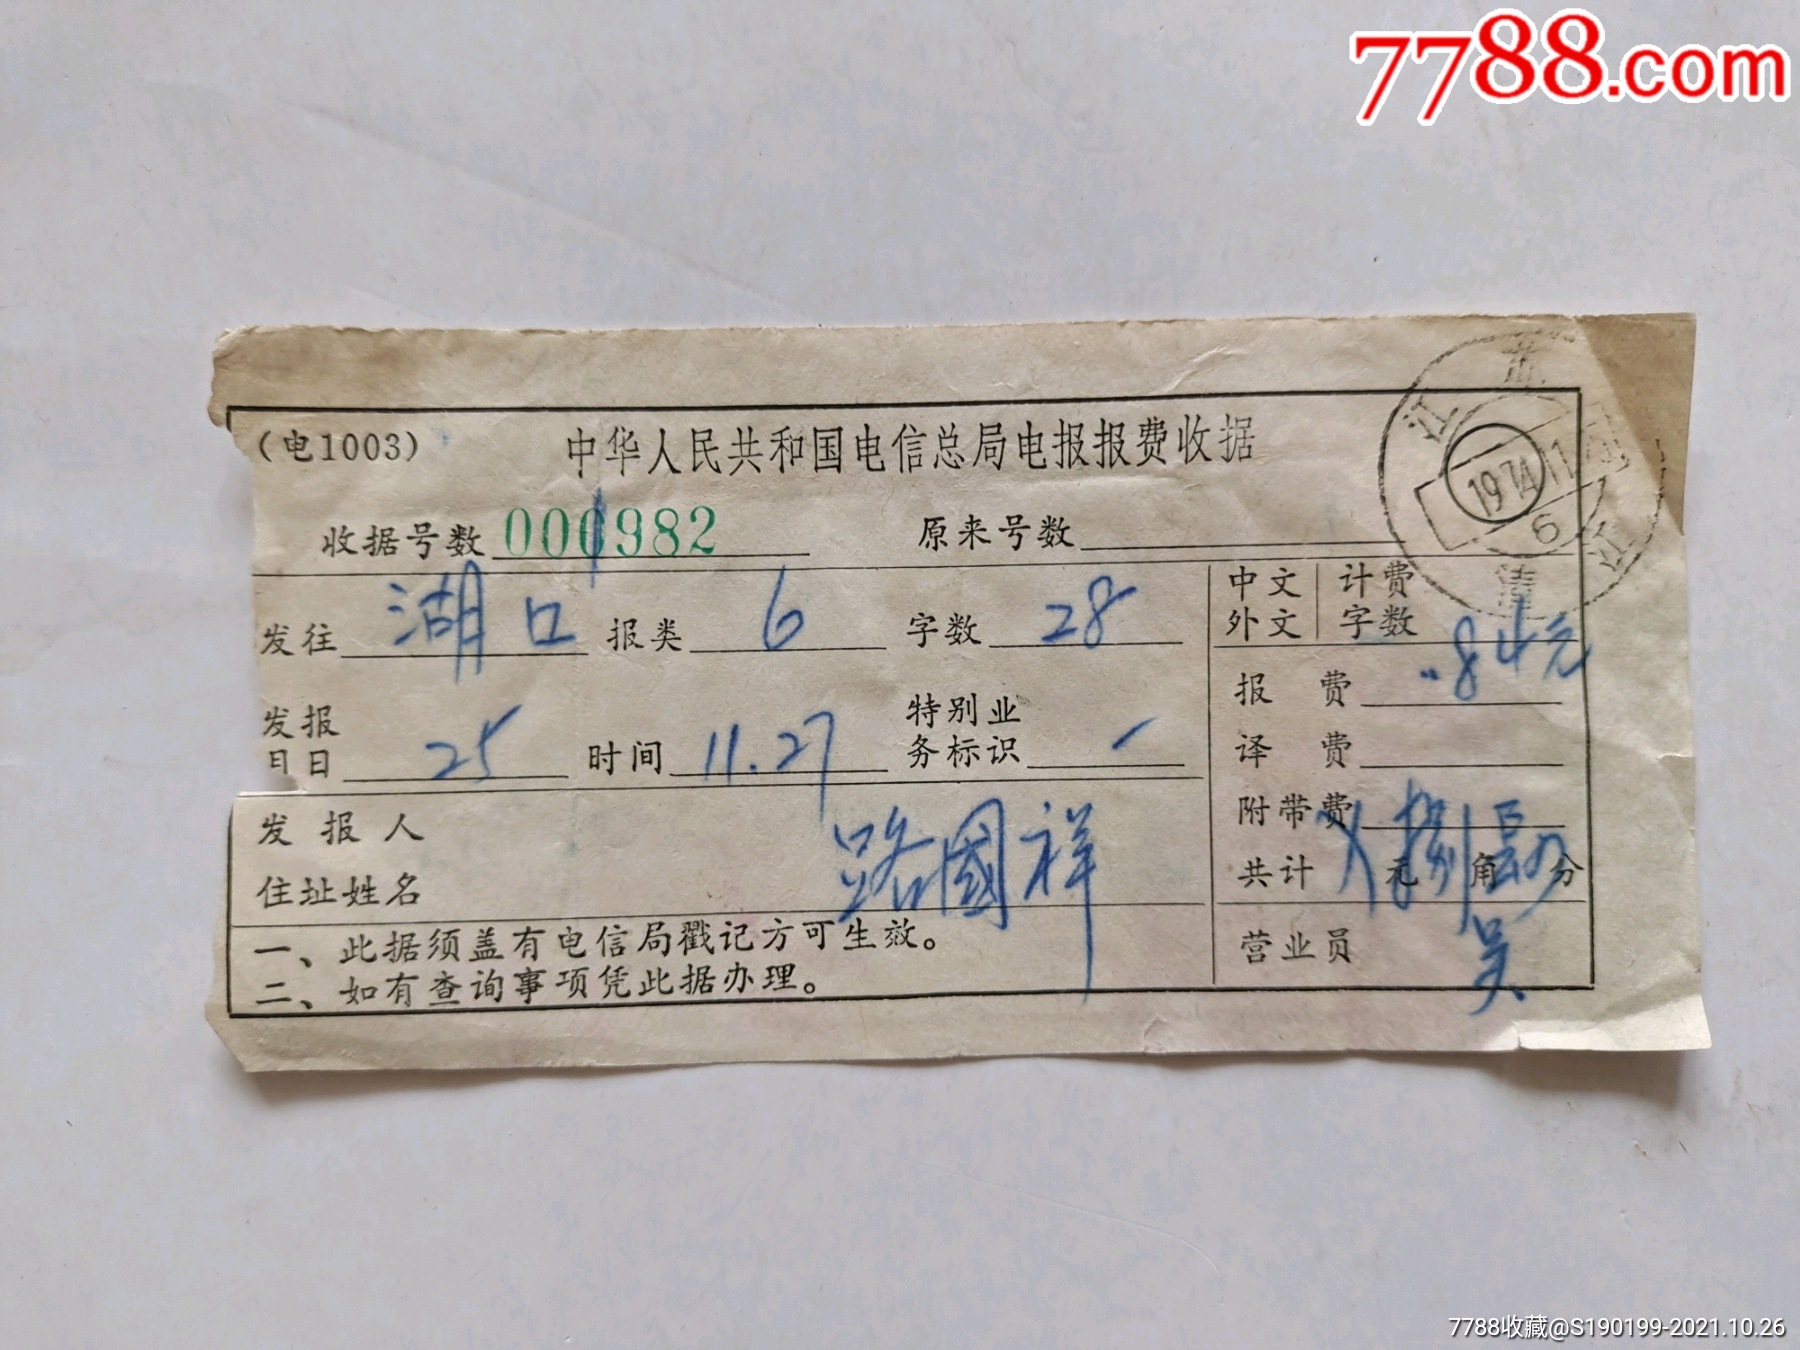 7788.com
(电1003) 中华人民共和国电信总局电报报费收据
收据号数 000982 原来号数
发往 湖口 报类 6 字数 28
中文 外文 计费字数
报费 .84元
发报日日 25 时间 11.27 特别业务标识 一
译费
附带费
发报人
住址姓名 路國祥
共计 元 捌 角 分
一、此据须盖有电信局戳记方可生效。
二、如有查询事项凭此据办理。
营业员 吴
江苏
1974.11
6
清江
7788收藏@S190199-2021.10.26